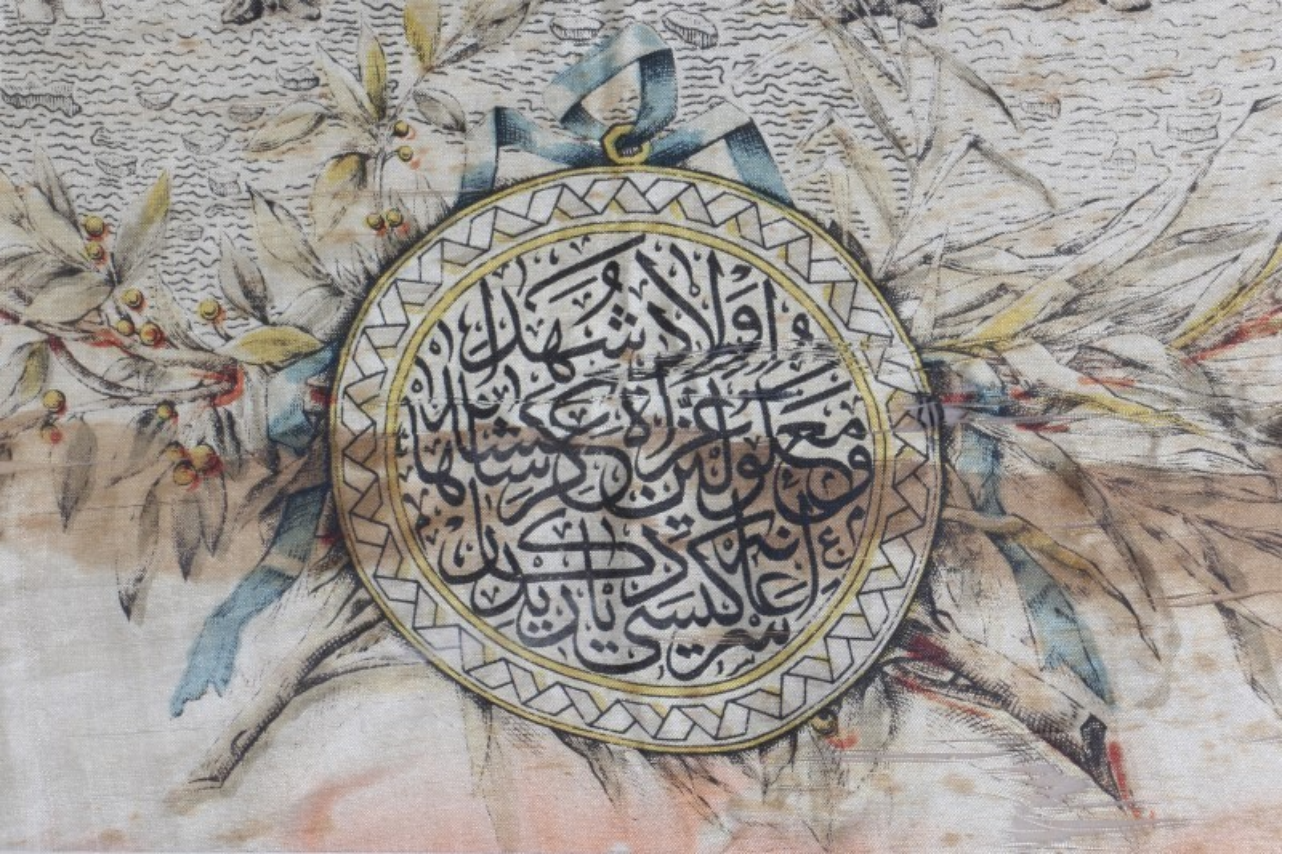 اَولاد شُهَداء
ومعلولین غزاة عساکر شاهانه
اعانه سرکیسی یادکاریدر